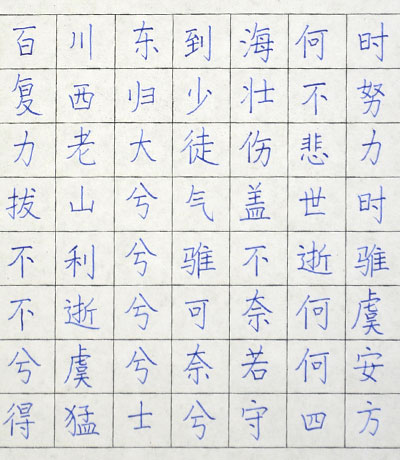 百川东到海何时
复西归少壮不努
力老大徒伤悲力
拔山兮气盖世时
不利兮骓不逝骓
不逝兮可奈何虞
兮虞兮奈若何安
得猛士兮守四方